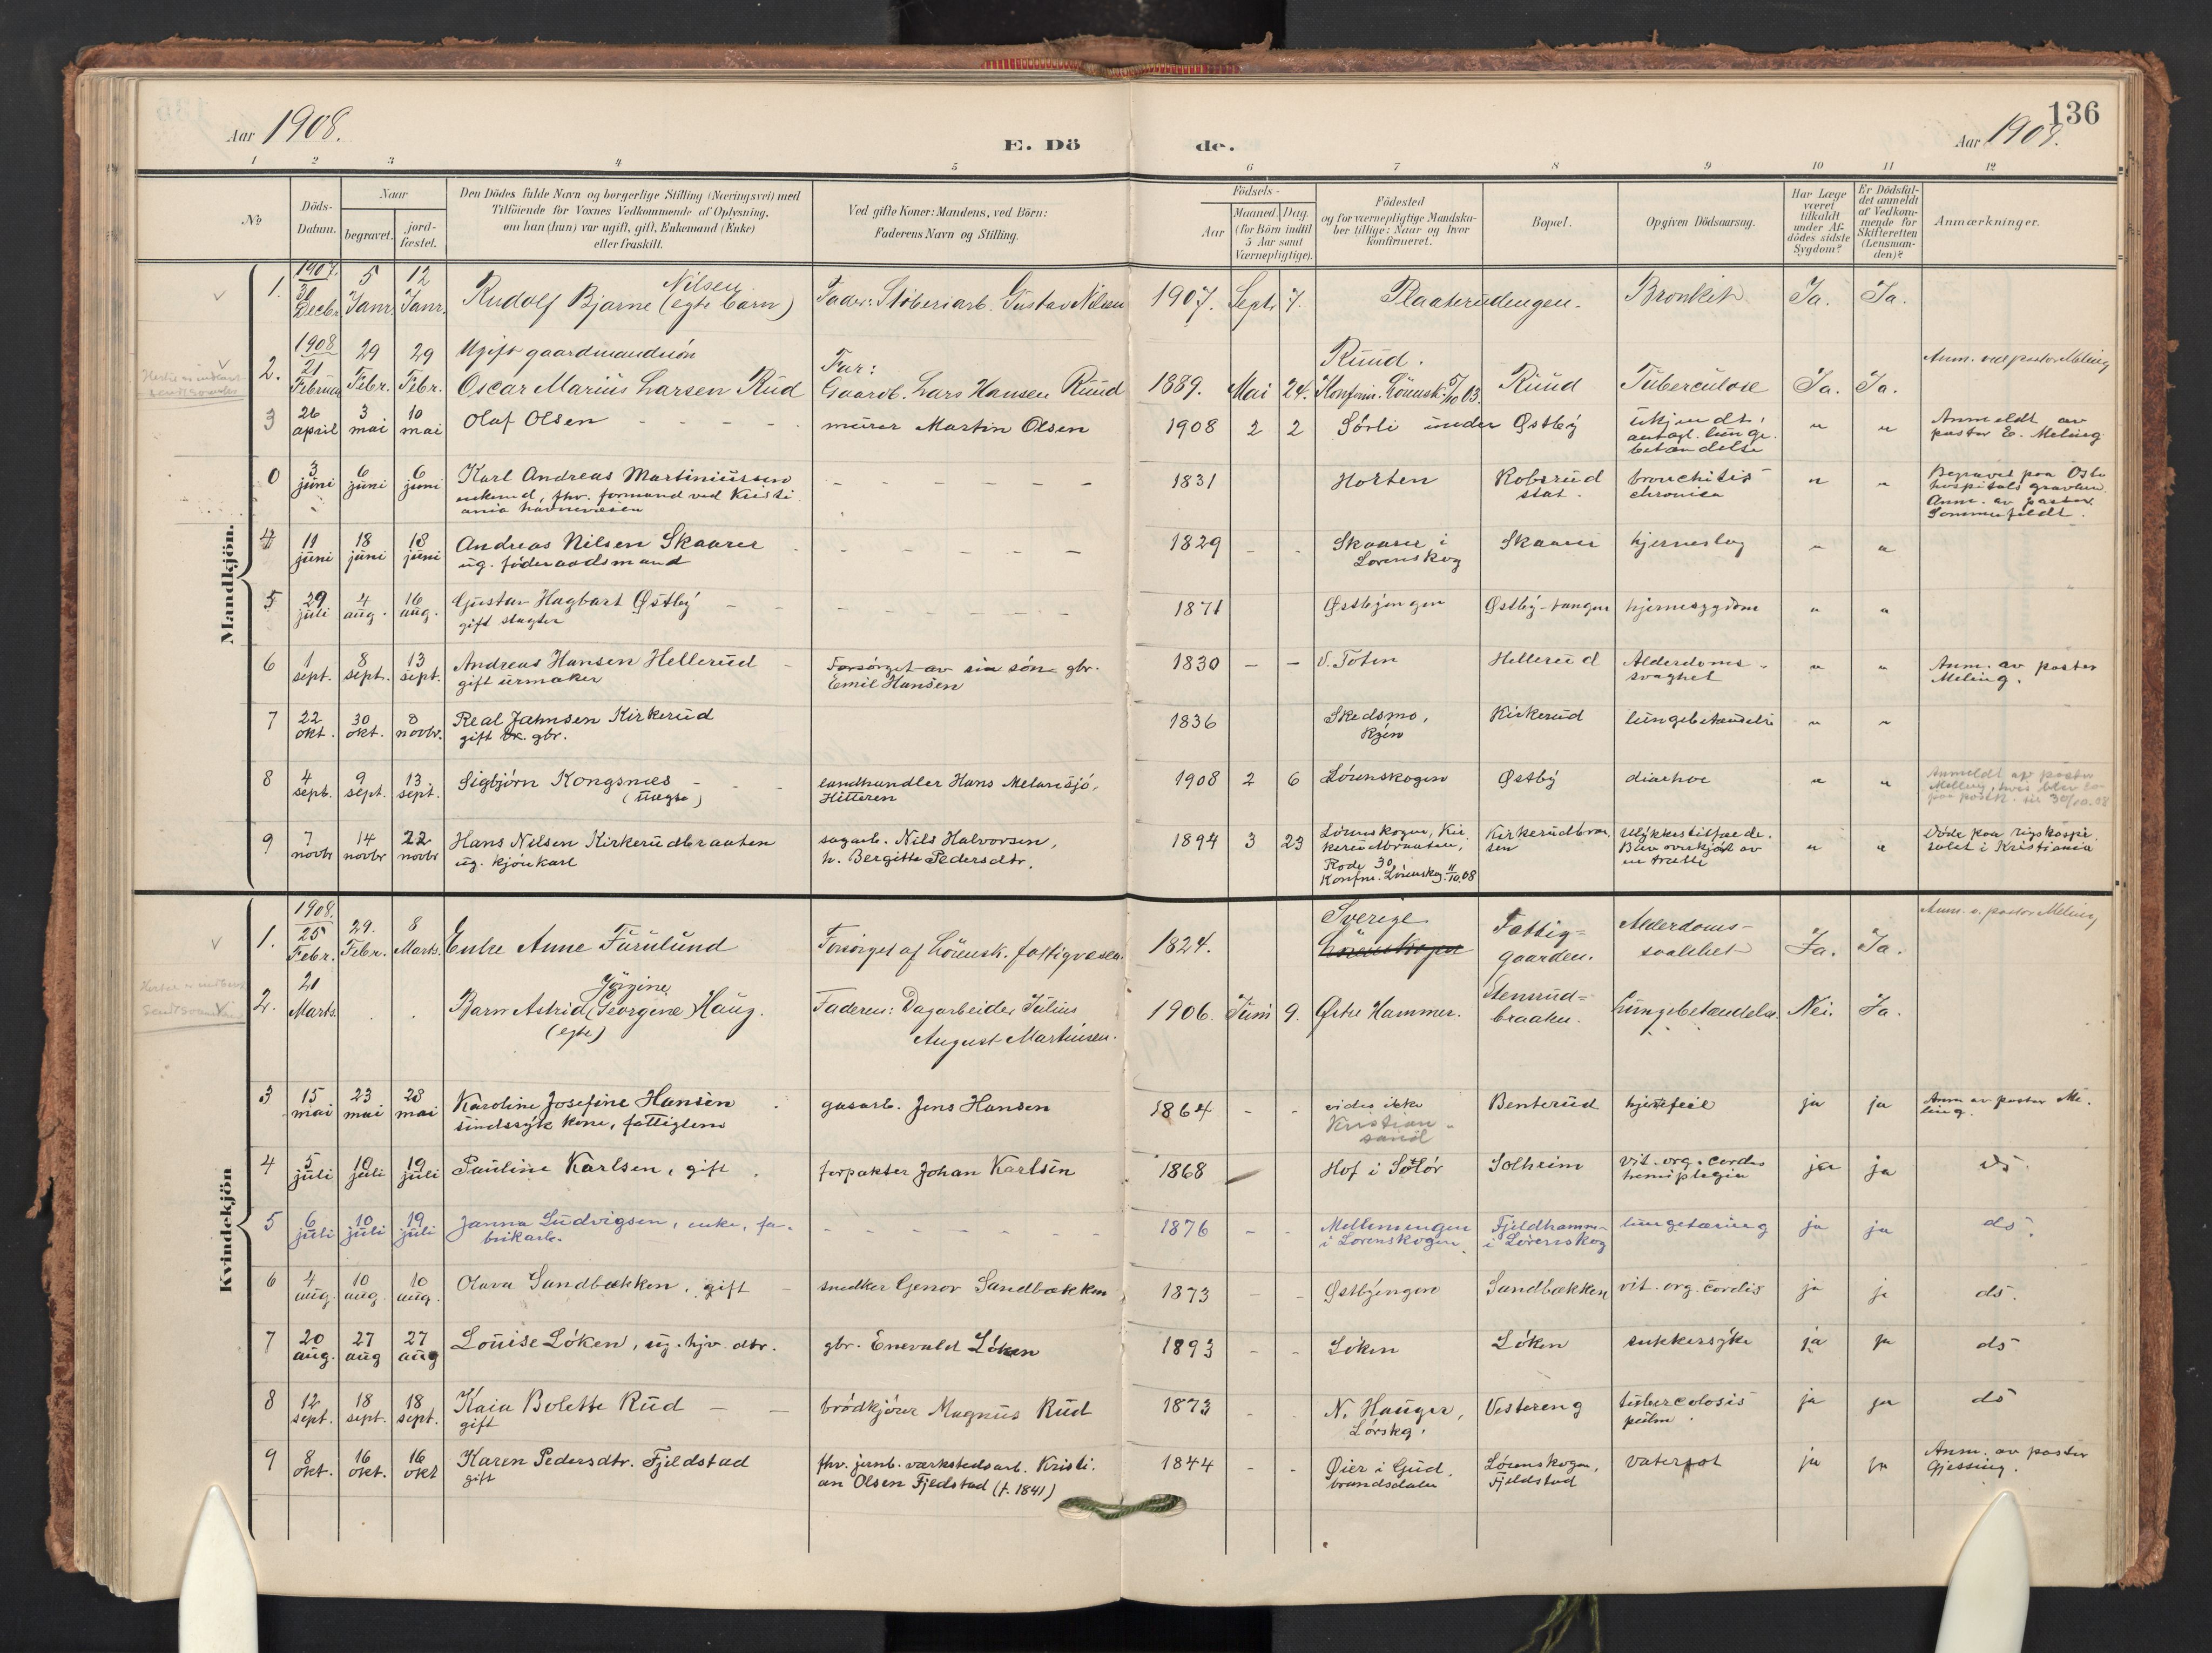 136
Aar 1908.
E. Dö
de.
Aar 1908.
1 2 3 4 5 6 7 8 9 10 11 12
No
Döds-Datum.
Naar
begravet.
jord-fæstet.
Den Dödes fulde Navn og borgerlige Stilling (Næringsvei) med
Tilföiende for Voxnes Vedkommende af Oplysning,
om han (hun) var ugift, gift, Enkemand (Enke)
eller fraskilt.
Ved gifte Koner: Mandens, ved Börn:
Faderens Navn og Stilling.
Födsels-
Aar
Maaned. Dag.
(for Börn indtil
5 Aar samt
Værnepligtige).
Födested
og for værnepligtige Mandska-
ber tillige: Naar og hvor
konfirmeret.
Bopæl.
Opgiven Dödsaarsag.
Har Læge
været
tilkaldt
under Af-
dödes sidste
Sygdom?
Er Dödsfal-
det anmeldt
af Vedkom-
mende for
Skifteretten
(Lensman-
den)?
Anmærkninger.
Mandkjön.
1. 1907. 30 Decbr 5 Janr. 12 Janr. Rudolf Bjarne Nilsen (egte barn) Fader: Stöberiarb. Gustav Nilsen 1907. Sept. 7. Plaaterudengen. Bronkit Ja. Ja.
2. 1908 21 Februar 29 Febr. 29 Febr. Ugift gaardmandsön
Oscar Marius Larsen Rud Far:
Gaardb. Lars Hansen Ruud 1889. Mai 24. Ruud.
Konfirm. Lörensk. 5/10 03. Ruud Tuberculose Ja. Ja. Anm. ved pastor Meling
3 26 april 3 mai 10 mai Olaf Olsen murer Martin Olsen 1908 2 2 Sörli under Østby ukjendt,
antagl. lunge-
betændelse " " Anmeldt av
pastor E. Meling
0 3 juni 6 juni 6 juni Karl Andreas Martiniussen
enkemd, fhv. formand ved Kristi
ania havnevæsen - - - 1831 Horten Robsrud
stat. bronchitis
chronica " " Begravet paa Oslo
hospitals gravlund.
Anm. av pastor
Sommerfeldt.
4 11 juni 18 juni 18 juni Andreas Nilsen Skaarer
ug. föderaadsmand - - - 1829 - - Skaarer i
Lørenskog Skaarer hjerneslag " "
5 29 juli 4 aug. 16 aug. Gustav Hagbart Østby
gift slagter - - - 1871 Østbyengen Østby-tangen hjernesygdom " "
6 1 sept. 8 sept. 13 sept. Andreas Hansen Hellerud
gift urmaker Forsörget av sin sön gbr.
Emil Hansen 1830 - - V. Toten Hellerud Alderdoms-
svaghet " " Anm. av pastor
Meling.
7 22 okt. 30 okt. 8 novbr. Real Jahnsen Kirkerud
gift gbr. 1836 Skedsmo, Kirkerud lungebetændelse " "
8 4 sept. 9 sept. 13 sept. Sigbjörn Kongsnæs
(uægte) landhandler Hans Melansjö,
Hitteren 1908 2 6 Lörenskogen Østby diarhoe " " Anmeldt av pastor
30/10.08
9 7 novbr 14 novbr 22 novbr Hans Nilsen Kirkerudbraaten
ug. kjörekarl sagarb. Nils Halvorsen,
h. Bergitte Pedersdtr. 1894 3 23 Lörenskogen, Kir
kerudbraaten,
Rode 30
Konfm. Lörenskog 11/10.08 Kirkerudbraa
ten Ulykkestilfælde.
Blev overkjört av
en tralle " " Döde paa rigshospi-
talet i Kristiania
Kvindekjön
1. 1908. 25 Febr. 29. Febr. 8 Marts. Enke Anne Furulund Forsörget af Lörensk. fattigvæsen. 1824. Sverige
Lörenskogen Fattig=
gaarden. Alderdoms-
svakhet Ja. Ja. Anm. v. pastor Meling
2. 21 Marts. . . Barn Astrid Georgine Haug.
Jörgine
(egte) Faderen: Dagarbeider Julius
August Martinsen. 1906. Juni 9. Østre Hammer. Stensrud=
braaten. Lungebetændelse. Nei. Ja.
3 15 mai 23 mai 28 mai Karoline Josefine Hansen
sindssyk kone, fattiglem gasarb. Jens Hansen 1864 - - vides ikke
Kristian-
sand Benterud hjertefeil ja ja Anm av pastor Me-
ling.
4 5 juli 10 juli 19 juli Pauline Karlsen, gift forpakter Johan Karlsen 1868 Hof i Solör Solheim vit. org. cordis
hemiplegia ja ja ds.
5 6 juli 10 juli 19 juli Janna Ludvigsen, enke, fa-
brikarb. - - - 1876 - - Mellemengen
i Lørenskogen. Fjeldhammer
i Lørenskog lungetæring ja ja ds.
6 4 aug. 10 aug. 10 aug. Olava Sandbækken, gift snedker Genor Sandbækken 1873 - - Østbyengen Sandbækken vit. org. cordis ja ja ds.
7 20 aug. 27 aug 27 aug Louise Löken, ug. hjv. dtr. gbr. Enevald Löken 1893 - - Löken Löken sukkersyke ja ja ds
8 12 sept. 18 sept. 18 sept. Kaia Bolette Rud
gift brödkjörer Magnus Rud 1873 - - N. Hauger,
Lörskg. Vestereng tuberculosis
pulm. ja ja ds
9 8 okt. 16 okt. 16 okt Karen Pedersdtr. Fjeldstad
gift fhv. jernb. værkstedsarb. Kristi-
an Olsen Fjeldstad (f. 1841) 1844 - - Øier i Gud-
brandsdalen Lörenskogen,
Fjeldstad vatersot ja ja Anm. av pastor
Gjessing.